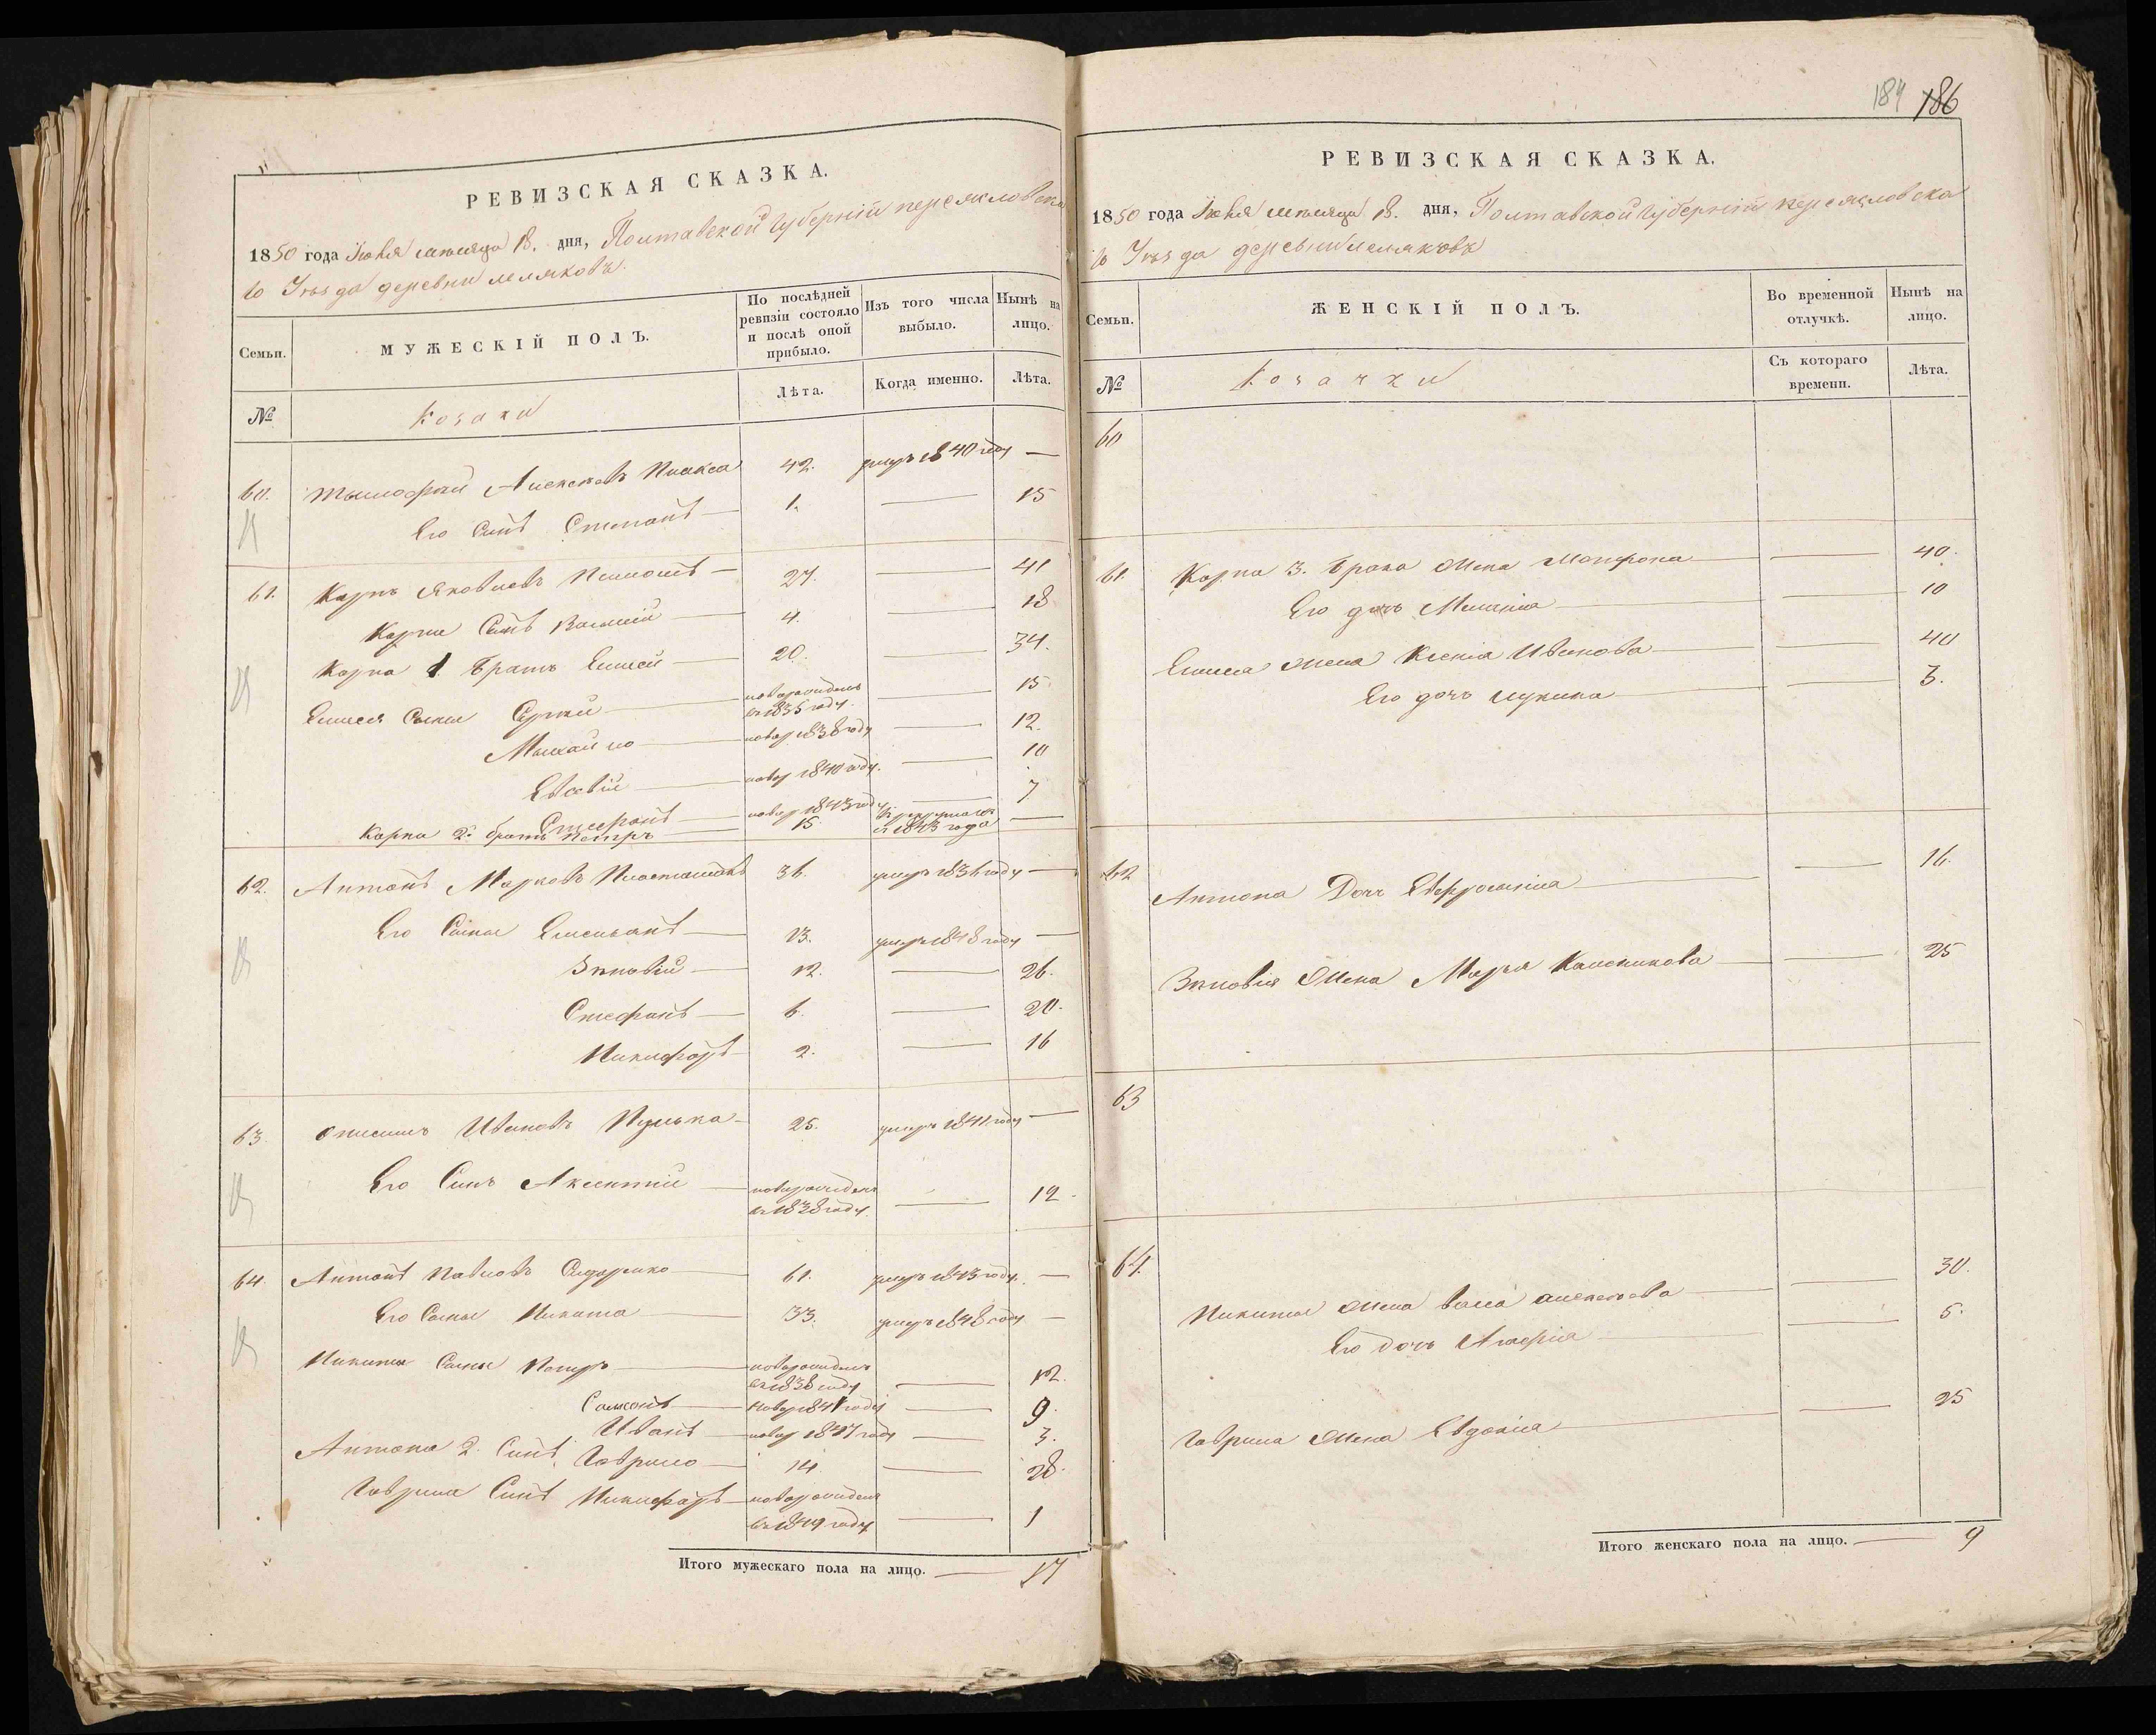 РЕВИЗСКАЯ СКАЗКА.
1850 года Іюня месяца 18. дня, Полтавской Губерніи переясловска
го Уѣзда деревни
Семьи.
МУЖЕСКІЙ ПОЛЪ.
По послѣдней ревизіи состояло и послѣ оной прибыло.
Изъ того числа выбыло.
Нынѣ на лицо.
№
Козаки
Лѣта.
Когда именно.
Лѣта.
60. Алексѣевъ 42. умеръ 1840 году —
Его Синъ Степанъ — 1. — 15
61. Карпъ Яковлевъ 27. — 41
Карпа Синъ Василій — 4. — 18
Карпа 1 братъ Елисей — 20. — 34.
Елисея Сыны Сергій — новорожденъ в 1835 году. — 15
Михайло — новор 1838 году — 12.
Евсевій — новор 1840 году. — 10
Стефанъ — новор 1843 году — 7
Карпа 2й братъ Петръ — 15 1843 года —
62. Антонъ Марковъ 36. умеръ 1836 году —
Его Сыны Емельянъ — 13. умеръ 1848 году —
Зиновій — 12. — 26.
Стефанъ — 6. — 20.
Никифоръ — 2. — 16
63. Онисимъ Ивановъ 25. умеръ 1841 году —
Его Синъ Аксентій — новорожденъ в 1838 году. — 12.
64. Антонъ Павловъ Сидоренко — 61. умеръ 1843 году. —
Его Сыны Никита — 33. умеръ 1848 году —
Никиты Сыны Петръ — новорожденъ в 1838 году — 12.
Самсонъ — новор 1841 году — 9.
Иванъ — новор 1847 году — 3.
Антона 2. Синъ Гаврило — 14 — 28.
Гаврила Синъ Никифоръ — новорожденъ в 1849 году — 1
Итого мужескаго пола на лицо. — 17
184 186
РЕВИЗСКАЯ СКАЗКА.
1850 года Іюня месяца 18. дня, Полтавской Губерніи переясловска
го Уѣзда деревни
Семьи.
ЖЕНСКІЙ ПОЛЪ.
Во временной отлучкѣ.
Нынѣ на лицо.
№
Козачки
Съ котораго времени.
Лѣта.
60
61. Карпа 3. брака Жена Матрона — 40.
Его дочь Меланія — 10
Елисея Жена Ксенія Иванова — 40
Его дочь — 3.
62
Антона Дочь Евфросинія — 16.
Зиновія Жена Марья — 25
63
64.
Никиты Жена Алексѣева — 30.
Его дочь Агафія — 5.
Гаврила Жена Евдокія — 25
Итого женскаго пола на лицо. — 9